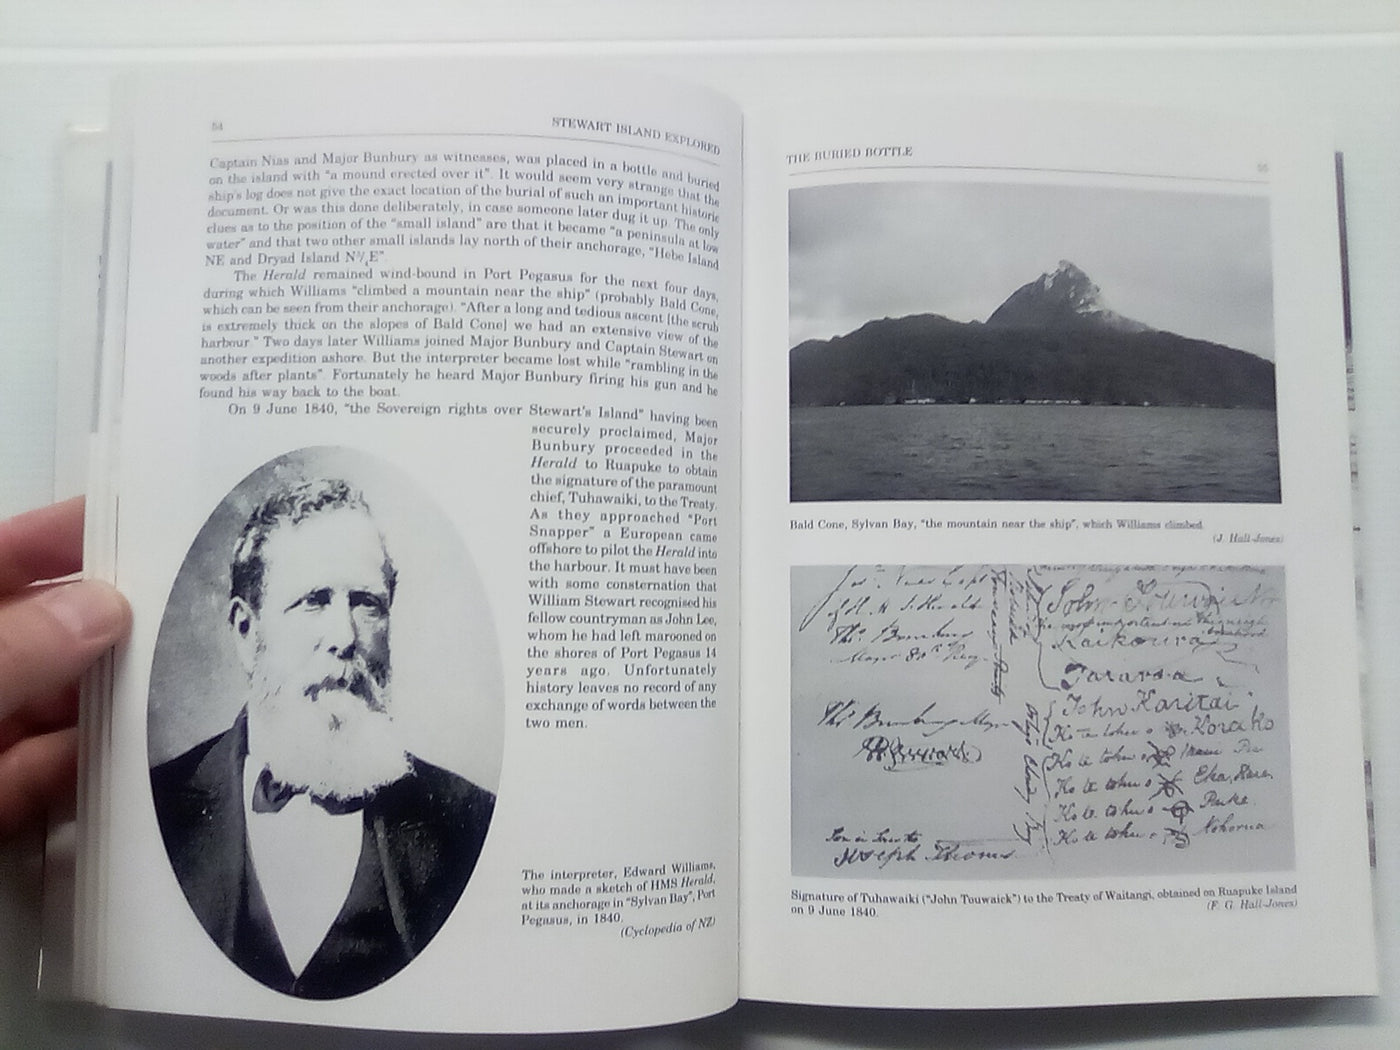 84
STEWART ISLAND EXPLORED
Captain Nias and Major Bunbury as witnesses, was placed in a bottle and buried
on the island with "a mound erected over it". It would seem very strange that the
ship's log does not give the exact location of the burial of such an important historic
document. Or was this done deliberately, in case someone later dug it up. The only
clues as to the position of the "small island" are that it became "a peninsula at low
water" and that two other small islands lay north of their anchorage, "Hebe Island
NE and Dryad Island N¾E".
The Herald remained wind-bound in Port Pegasus for the next four days,
during which Williams "climbed a mountain near the ship" (probably Bald Cone,
which can be seen from their anchorage). "After a long and tedious ascent [the scrub
is extremely thick on the slopes of Bald Cone] we had an extensive view of the
harbour." Two days later Williams joined Major Bunbury and Captain Stewart on
another expedition ashore. But the interpreter became lost while "rambling in the
woods after plants". Fortunately he heard Major Bunbury firing his gun and he
found his way back to the boat.
On 9 June 1840, "the Sovereign rights over Stewart's Island" having been
securely proclaimed, Major
Bunbury proceeded in the
Herald to Ruapuke to obtain
the signature of the paramount
chief, Tuhawaiki, to the Treaty.
As they approached "Port
Snapper" a European came
offshore to pilot the Herald into
the harbour. It must have been
with some consternation that
William Stewart recognised his
fellow countryman as John Lee,
whom he had left marooned on
the shores of Port Pegasus 14
years ago. Unfortunately
history leaves no record of any
exchange of words between the
two men.
The interpreter, Edward Williams,
who made a sketch of HMS Herald,
at its anchorage in "Sylvan Bay", Port
Pegasus, in 1840.
(Cyclopedia of NZ)
THE BURIED BOTTLE
Bald Cone, Sylvan Bay, "the mountain near the ship", which Williams climbed.
(J. Hall-Jones)
of H. M. S. Herald
Thos. Bunbury
Major 80th Reg.
Kaikoura
Taiaroa
Thos. Bunbury Major
John Karitai
Ko te tohu o Korako
Ko te tohu o
Ko te tohu o
Ko te tohu o
Ko te tohu o
Joseph Thomas
Signature of Tuhawaiki ("John Touwaick") to the Treaty of Waitangi, obtained on Ruapuke Island
on 9 June 1840.
(F. G. Hall-Jones)